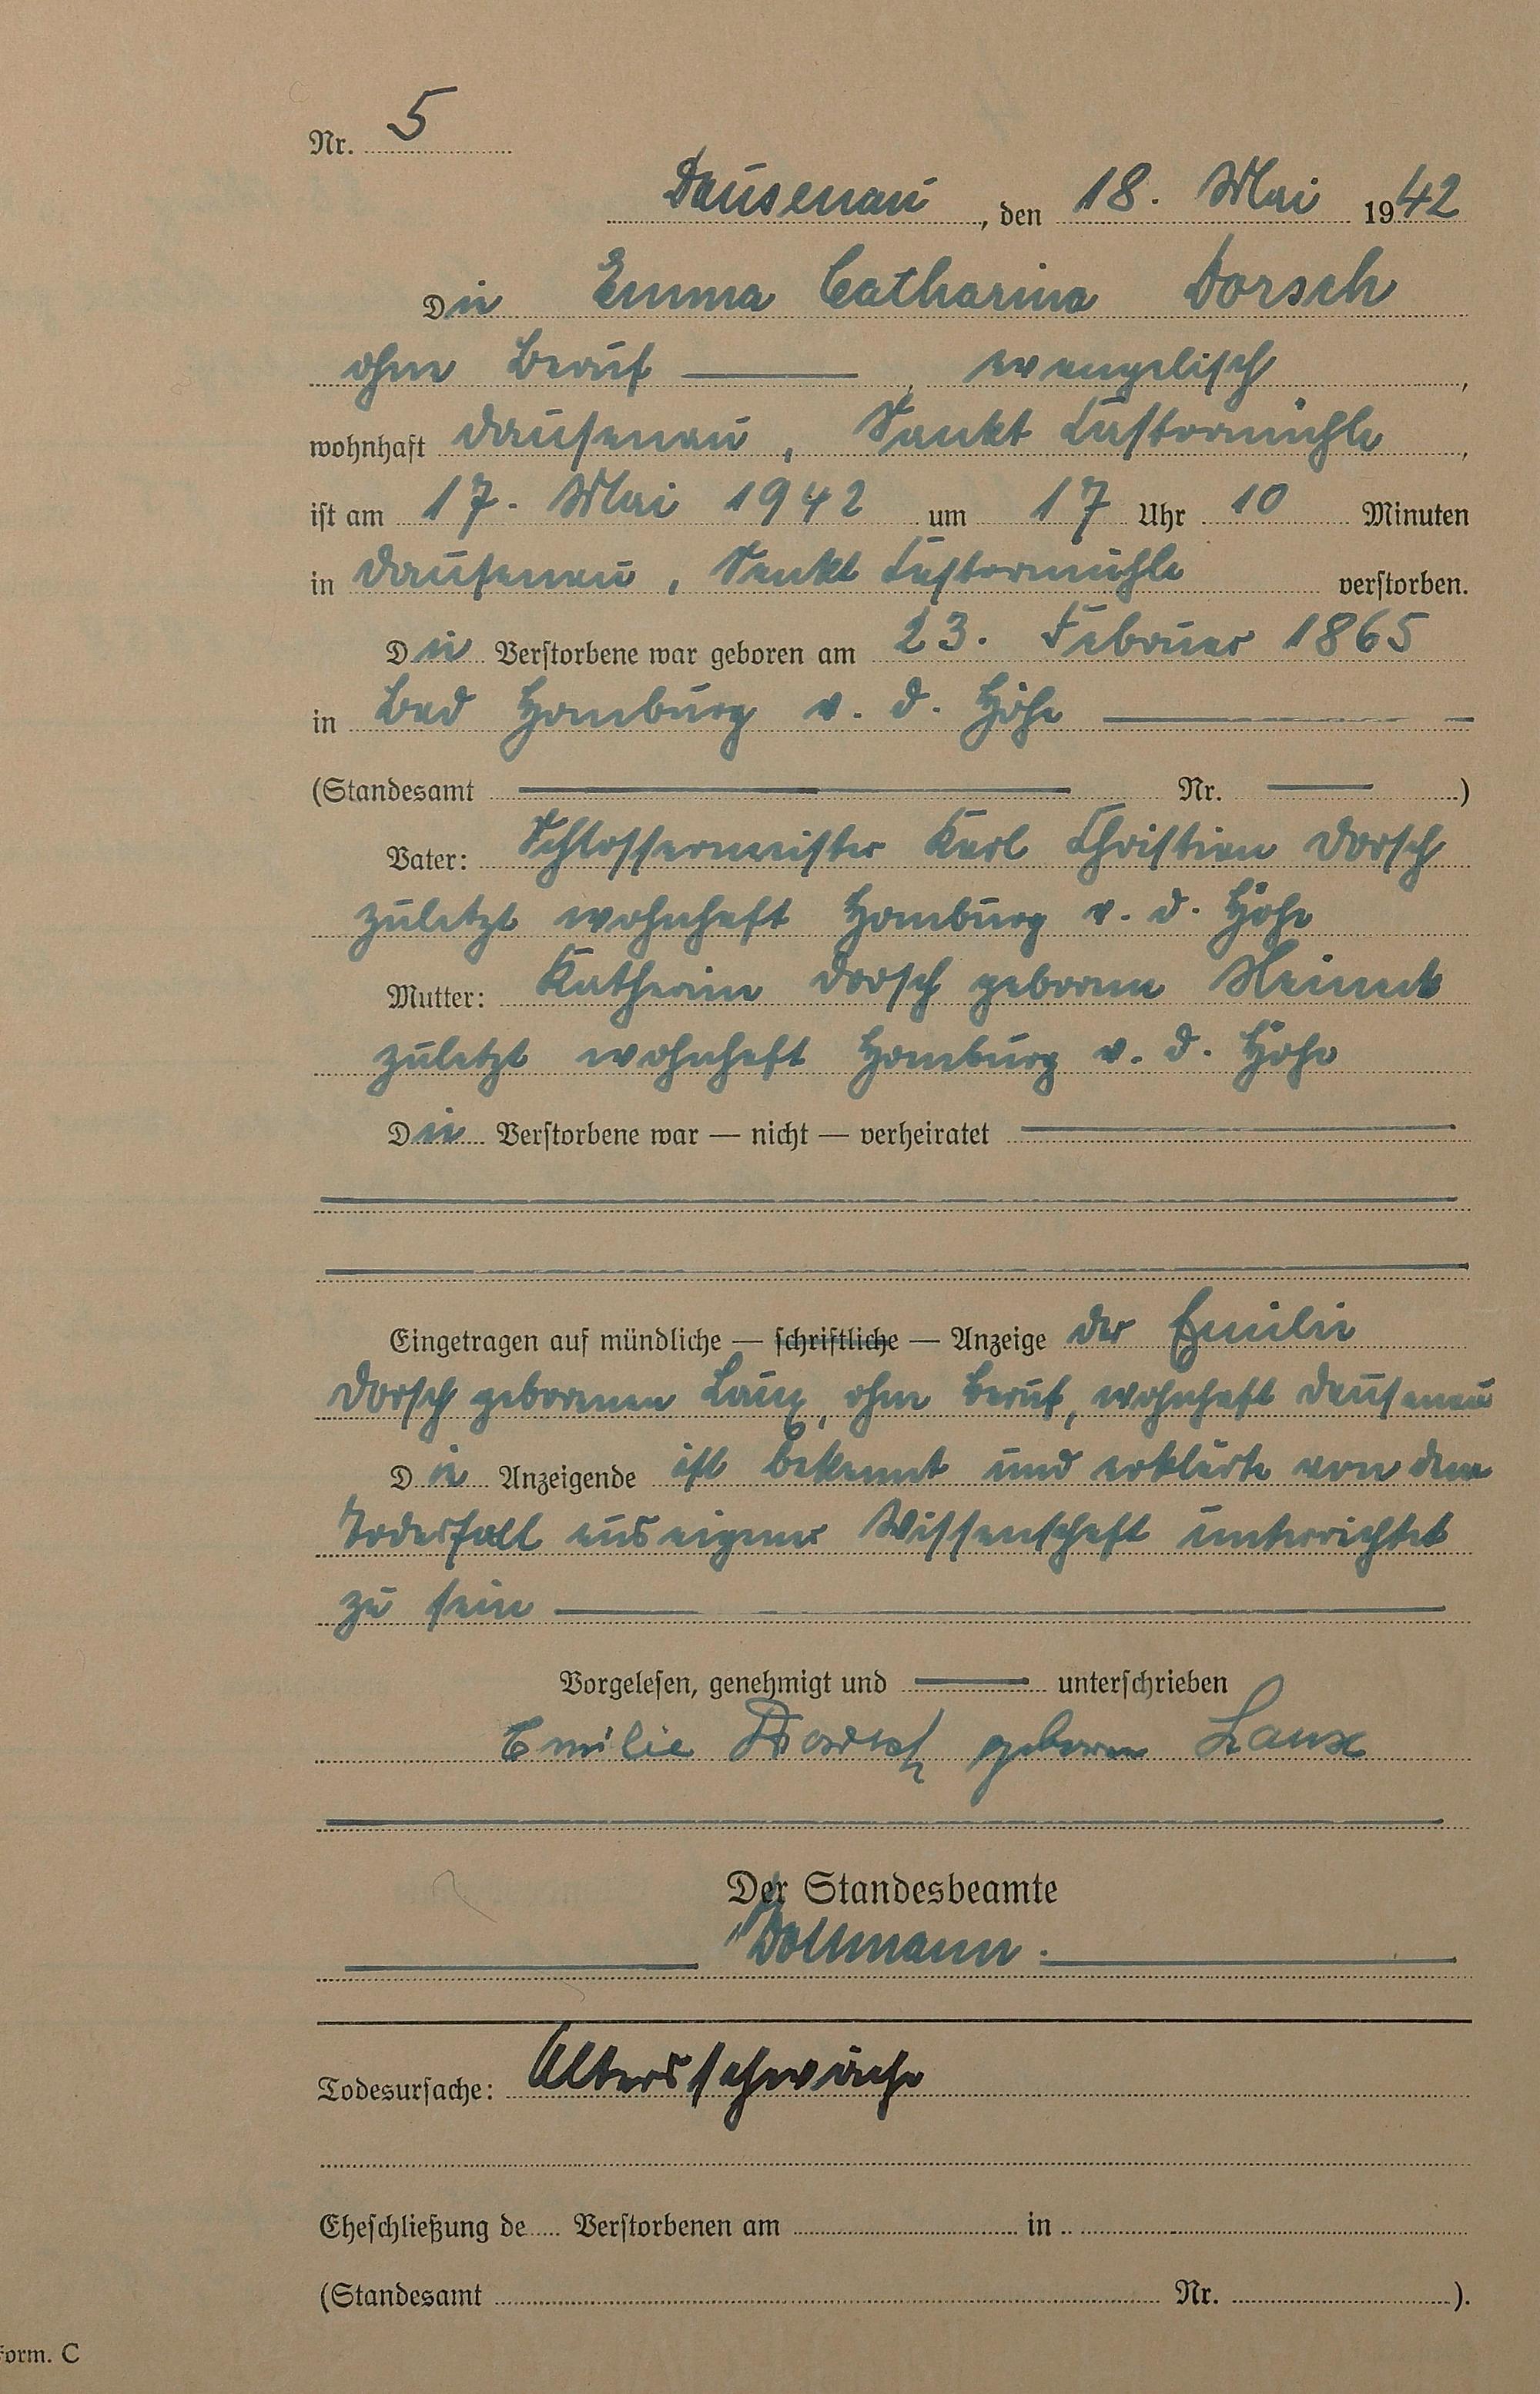 Nr. 5
Dausenau, den 18. Mai 1942
Die Emma Catharina Dorsch
ohne Beruf — , evangelisch,
wohnhaft Dausenau, Sankt Kastormühle,
ist am 17. Mai 1942 um 17 Uhr 10 Minuten
in Dausenau, Sankt Kastormühle verstorben.
Die Verstorbene war geboren am 23. Februar 1865
in Bad Homburg v. d. Höhe —
(Standesamt — Nr. — )
Vater: Schlossermeister Karl Christian Dorsch
zuletzt wohnhaft Homburg v. d. Höhe
Mutter: Katharine Dorsch geborene
zuletzt wohnhaft Homburg v. d. Höhe
Die Verstorbene war — nicht — verheiratet —
Eingetragen auf mündliche — schriftliche — Anzeige der Emilie
Dorsch geborenen Laux, ohne Beruf, wohnhaft Dausenau
Die Anzeigende ist bekannt und erklärte von dem
Todesfall aus eigener Wissenschaft unterrichtet
zu sein —
Vorgelesen, genehmigt und — unterschrieben
Emilie Dorsch geborene Laux
Der Standesbeamte
Todesursache: Altersschwäche
Eheschließung de Verstorbenen am in
(Standesamt Nr. ).
Form. C